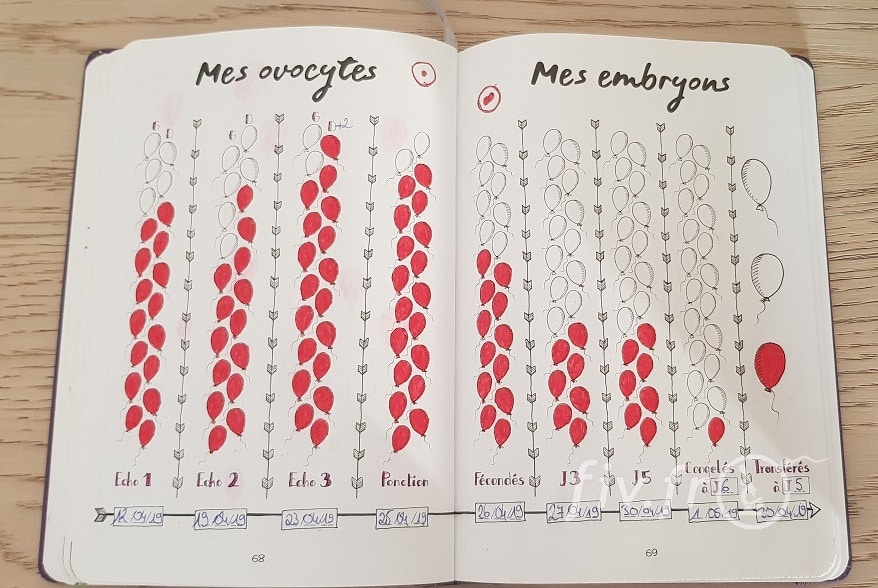 Mes ovocytes
G D
G D
G D+2
Echo 1 Echo 2 Echo 3 Ponction
12/04/19 19/04/19 23/04/19 25/04/19
68
Mes embryons
Fécondés J3 J5 Congelés Transférés
à J6 à J5
26/04/19 27/04/19 30/04/19 1/05/19 30/04/19
69
fiv.fr